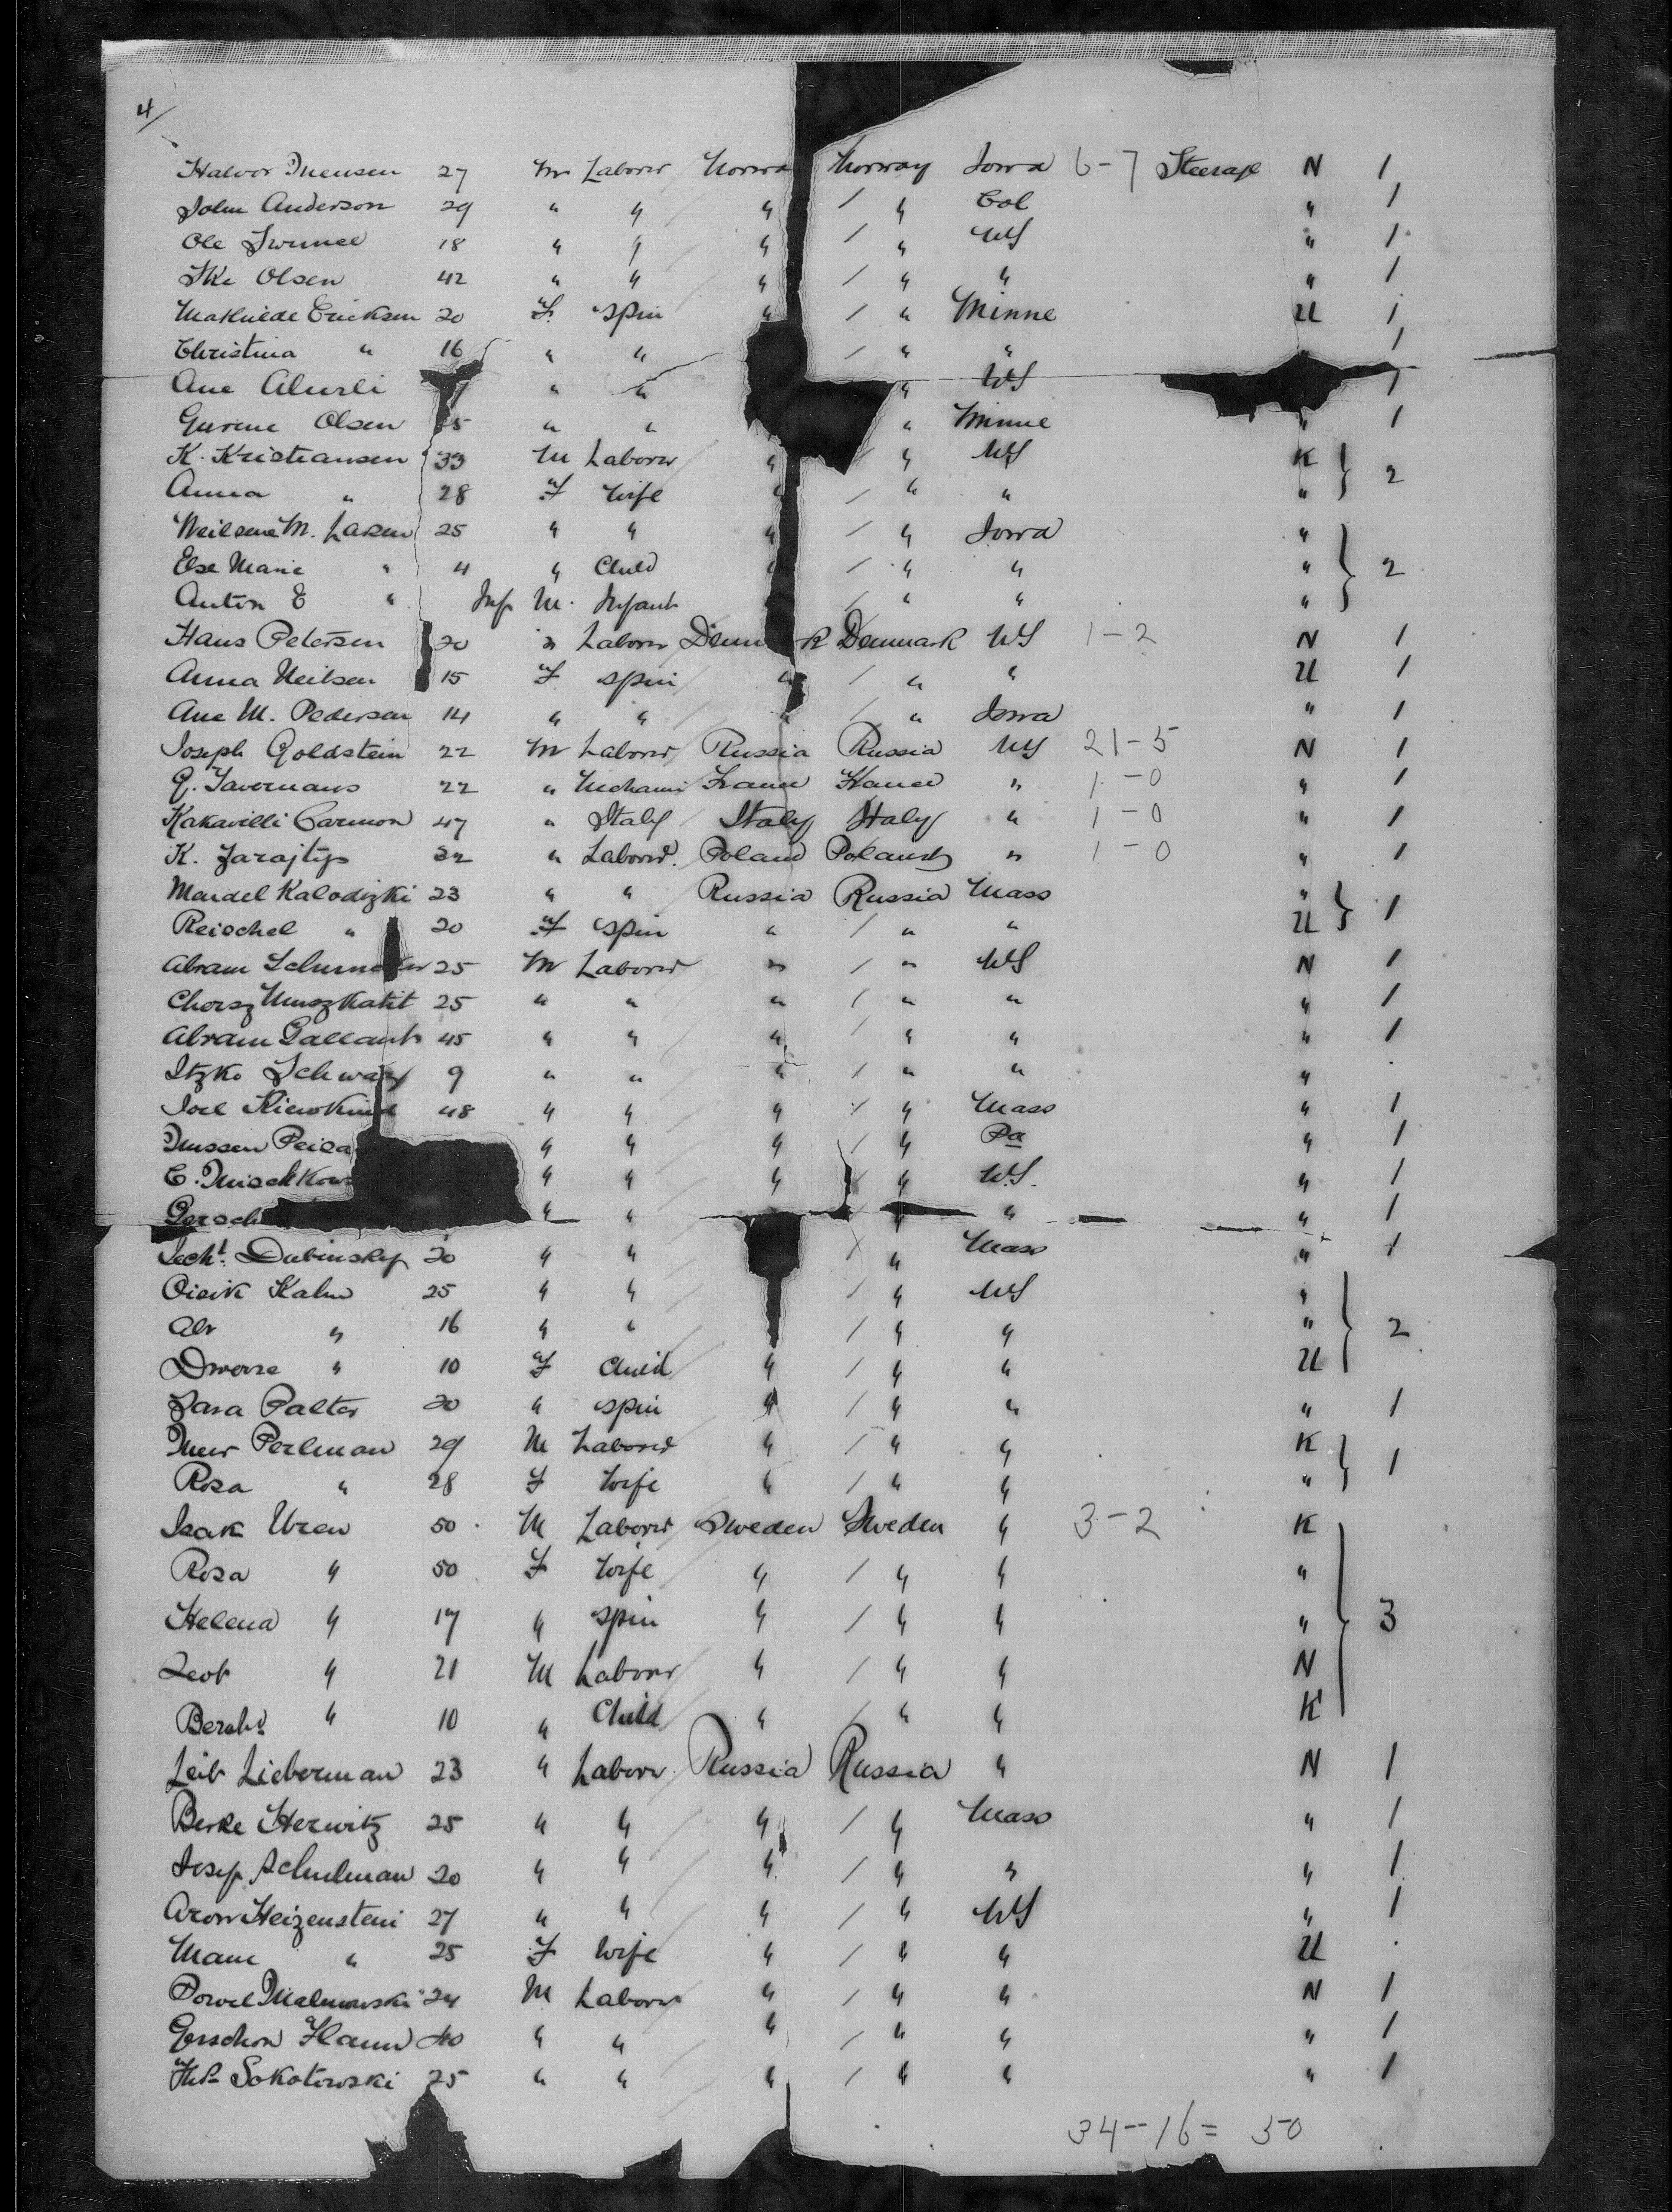 4/
Halvor Iversen 27 M Laborer Norwa Norway Iowa 6-7 Steerage N 1
John Anderson 29 " " " / " Col " 1
Ole 18 " " " / " NY " 1
Ole Olsen 42 " " " / " " " 1
Mathilde Ericksen 20 F. Spin " / " Minne U 1
Christina " 16 " " / " " 1
Ane " " " NY 1
Gurine Olsen 5 " " " Minne " 1
K. Kristiansen 33 M Laborer " / " NY K } 2
Anna " 28 F Wife " / " " "
M. Larsen 25 " " " / " Iowa " } 2
Else Marie " 4 " Child / " " "
Anton E " Inf M. Infant / " " "
Hans Petersen 20 " Laborer Denm rk Denmark NY 1-2 N 1
Anna Neilsen 15 F Spin " / " " U 1
Ane M. Pedersen 14 " " " / " Iowa " 1
Joseph Goldstein 22 M Laborer Russia Russia NY 21-5 N 1
G. Tavernaus 22 " Mechanic France France " 1-0 " 1
Kakavilli Carmon 47 " Italy Italy Italy " 1-0 " 1
K. Zarajtys 32 " Laborer. Poland Poland " 1-0 " 1
Mandel Kalodizki 23 " " Russia Russia Mass " } 1
Reischel " 20 F Spin " / " " U
Abram 25 M Laborer " / " NY N 1
Chorsz Muszkatit 25 " " " / " " " 1
Abram Gallant 45 " " " / " " " 1
Itzko Schwarz 9 " " " / " " "
Joel 48 " " " / " Mass " 1
" " " / " Pa " 1
C. Mischkow " " " " N.Y. " 1
Gersch " " " " " 1
Dubinsky 20 " " / " Mass " 1
Oisik Kahn 25 " " / " NY " } 2
Abr " 16 " " / " " "
Dwoire " 10 F Child " / " " U
Sara Palter 20 " Spin " / " " " 1
Meier Perlman 29 M Laborer " / " " K } 1
Rosa " 28 F Wife " / " " "
Isak Uren 50 M Laborer Sweden Sweden " 3-2 K } 3
Rosa " 50 F Wife " / " " "
Helena " 17 " Spin " / " " "
Leob " 21 M Laborer " / " " N
Berhd " 10 " Child " / " " K
Leib Lieberman 23 " Laborer Russia Russia " N 1
Berke Herwitz 25 " " " / " Mass " 1
Josef Schulman 20 " " " / " " " 1
Aron Heizenstein 27 " " " / " NY " 1
" 25 F Wife " / " " U
Powel Malinowski 24 M Laborer " / " " N 1
Gerschon Flaum 40 " " " / " " " 1
Sokolowski 25 " " " / " " " 1
34-16= 50